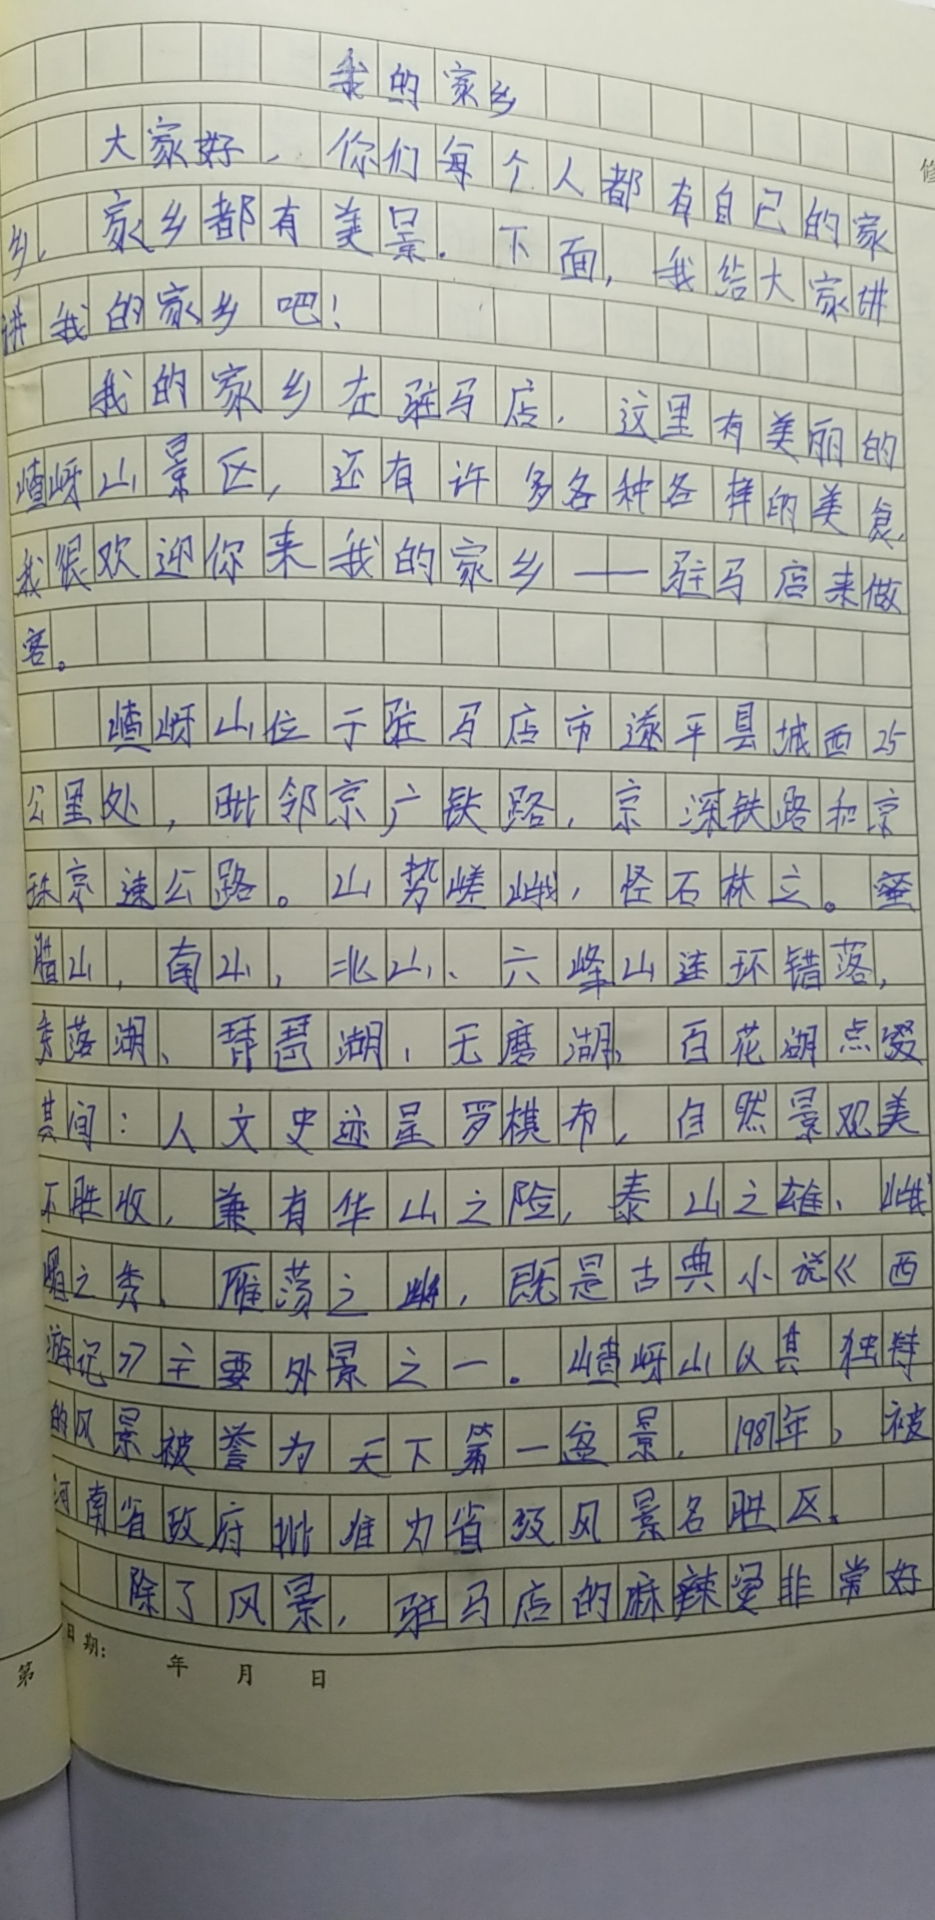 我的家乡
大家好，你们每个人都有自己的家
乡，家乡都有美景。下面，我给大家讲
讲我的家乡吧！
我的家乡在驻马店，这里有美丽的
嵖岈山景区，还有许多各种各样的美食，
我很欢迎你来我的家乡——驻马店来做
客。
嵖岈山位于驻马店市遂平县城西25
公里处，毗邻京广铁路，京深铁路和京
珠京速公路。山势嵯峨，怪石林立。蜜
腊山，南山，北山、六峰山连环错落，
落湖、琵琶湖，无磨湖、百花湖点缀
其间：人文史迹星罗棋布，自然景观美
不胜收，兼有华山之险，泰山之雄、峨
嵋之秀、雁荡之，既是古典小说《西
游记》主要外景之一。嵖岈山以其独特
的风景被誉为天下第一盆景，1987年，被
河南省政府批准为省级风景名胜区。
除了风景，驻马店的麻辣烫非常好
日期：
年 月 日
第
修